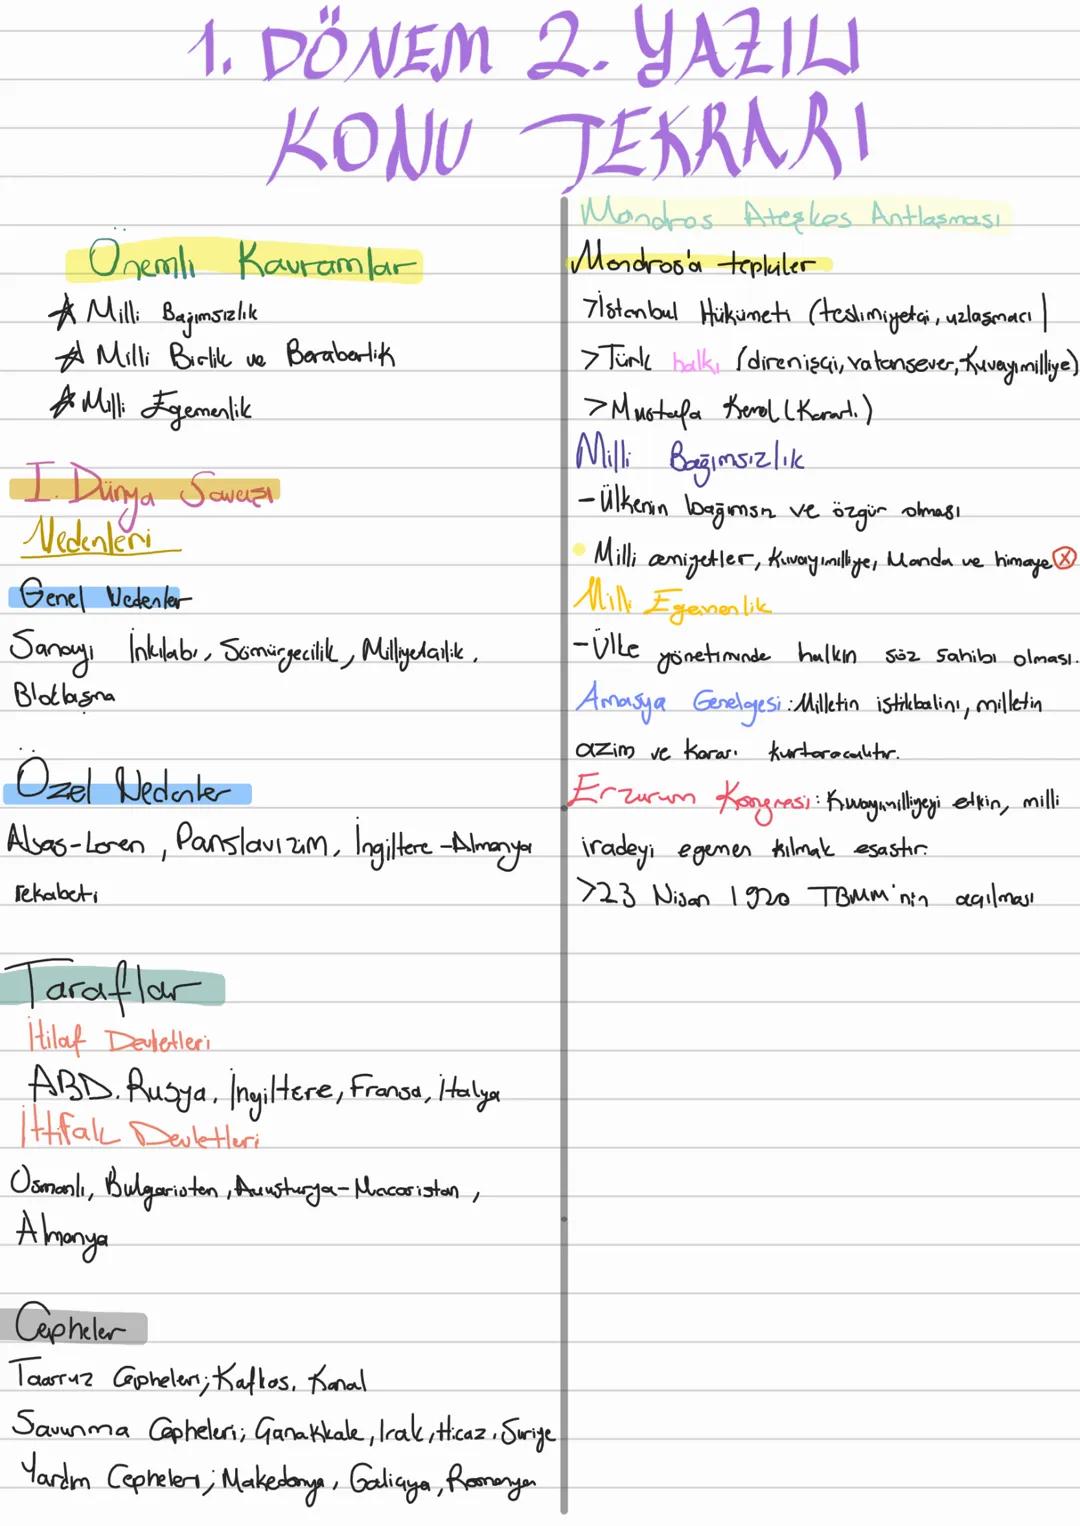 1. DÖNEM 2. YAZILI
KONU TEKRARI
Önemli Kavramlar
Milli Bağımsızlık
Milli Birlik ve Beraberlik
Milli Egemenlik
I. Dünya Savaşı
Nedenleri
Genel Nedenler
Sanayi İnkılabı, Sömürgecilik, Milliyetçilik,
Bloklaşma
Özel Nedenler
Alsas-Loren, Panslavizim, İngiltere-Almanya
rekabeti
Taraflar
İtilaf Devletleri
ABD. Rusya, İngiltere, Fransa, İtalya
İttifak Devletleri
Osmanlı, Bulgaristan, Avusturya-Macaristan,
Almanya
Cepheler
Taarruz Cepheleri; Kafkas, Kanal
Savunma Cepheleri; Çanakkale, Irak, Hicaz, Suriye
Yardım Cepheleri; Makedonya, Galiçya, Romanya
Mondros Ateşkes Antlaşması
Mondros'a tepkiler
>İstanbul Hükümeti (teslimiyetçi, uzlaşmacı)
>Türk halkı (direnişçi, vatansever, Kuvayımilliye)
>Mustafa Kemal (Kararlı)
Milli Bağımsızlık
-Ülkenin bağımsız ve özgür olması
Milli cemiyetler, Kuvayımilliye, Manda ve himaye
Milli Egemenlik
-Ülke yönetiminde halkın söz sahibi olması.
Amasya Genelgesi: Milletin istikbalini, milletin
azim ve kararı kurtaracaktır.
Erzurum Kongresi: Kuvayımilliyeyi etkin, milli
iradeyi egemen kılmak esastır.
>23 Nisan 1920 TBMM'nin açılması